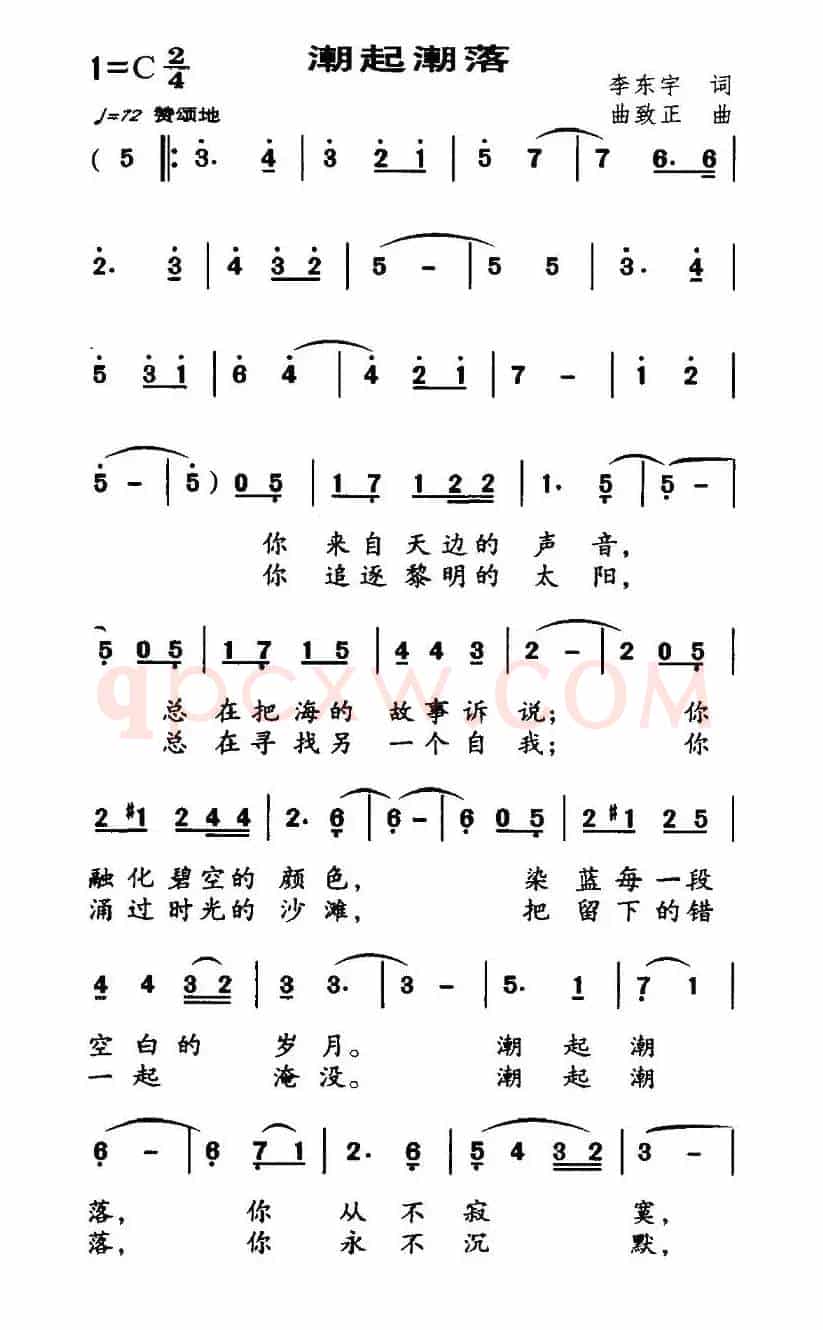 潮起潮落
1=C 2/4
李东宇 词
♩=72 赞颂地
曲致正 曲
( 5 ‖: 3̇. 4̇ | 3̇ 2̇ 1̇ | 5̇ 7 | 7 6. 6 |
2̇. 3̇ | 4̇ 3̇ 2̇ | 5̇ - | 5̇ 5̇ | 3̇. 4̇ |
5̇ 3̇ 1̇ | 6̇ 4̇ | 4̇ 2̇ 1̇ | 7 - | 1̇ 2̇ |
5̇ - | 5̇ ) 0 5̣ | 1 7̣ 1 2 2 | 1. 5̣ | 5̣ - |
你 来自天边的 声 音,
你 追逐黎明的 太 阳,
5̣ 0 5̣ | 1 7̣ 1 5 | 4 4 3 | 2 - | 2 0 5̣ |
总 在把海的 故事诉 说; 你
总 在寻找另 一个自 我; 你
2 #1 2 4 4 | 2. 6̣ | 6̣ - | 6̣ 0 5̣ | 2 #1 2 5 |
融化碧空的 颜 色, 染 蓝每一段
涌过时光的 沙 滩, 把 留下的错
4 4 3 2 | 3 3. | 3 - | 5. 1 | 7̣ 1 |
空白的 岁 月。 潮 起 潮
一起 淹 没。 潮 起 潮
6̣ - | 6̣ 7̣ 1 | 2. 6̣ | 5̣ 4 3 2 | 3 - |
落, 你 从 不 寂 寞,
落, 你 永 不 沉 默,
qpcxw.COM